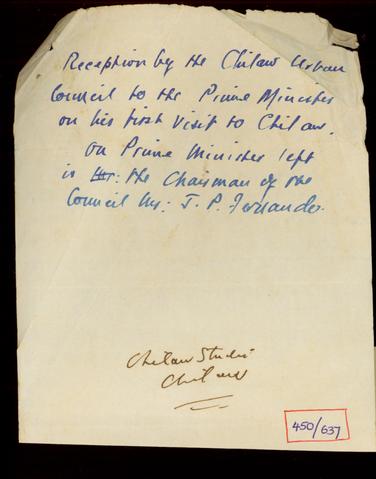 Reception by the Chilaw Urban
Council to the Prime Minister
on his first visit to Chilaw.
On Prime Minister left
is Mr: the Chairman of the
Council Mr: J. P. Fernando.
Chilaw Studio
Chilaw
450/637